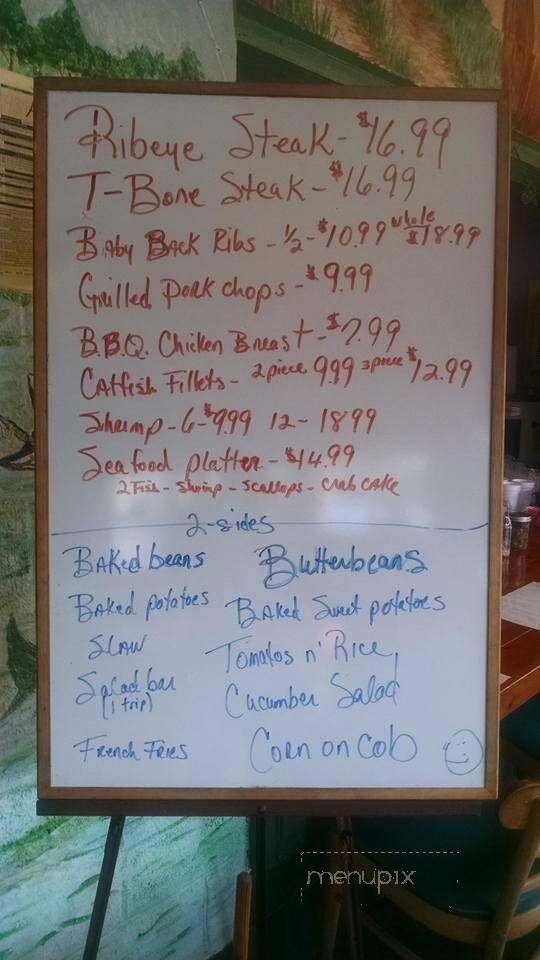 Ribeye Steak - $16.99
T-Bone Steak - $16.99
Baby Back Ribs - 1/2 - $10.99 whole $18.99
Grilled Pork chops - $9.99
B.B.Q. Chicken Breast - $7.99
Catfish Fillets - 2 piece 999 3 piece $12.99
Shrimp - 6 - $9.99 12 - 1899
Seafood platter - $14.99
2 Fish - Shrimp - Scallops - Crab Cake
2-sides
Baked beans Butterbeans
Baked potatoes Baked Sweet potatoes
Slaw Tomatos n' Rice
Salad bar Cucumber Salad
(1 trip)
French Fries Corn on Cob
menupix